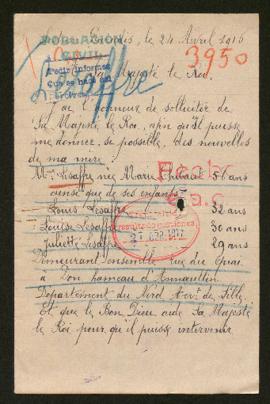 POBLACION
CIVIL
le 24 Avril 1916
3950
Majesté le Roi.
J'ai l'honneur de solliciter de
Sa Majesté le Roi, afin qu'Il puisse
me donner, se possible, des nouvelles
de ma mère
Mme Lesaffre née Marie Thibaut 51 ans
ainsi que de ses enfants
Louis Lesaffre 32 ans
Louise Lesaffre 30 ans
Juliette Lesaffre 29 ans
Demeurant ensemble rue du Quai
à Don hameau d'Annœullin
Département du Nord Arr. de Lille
Et que le Bon Dieu aide Sa Majesté
le Roi pour qu'il puisse intervenir